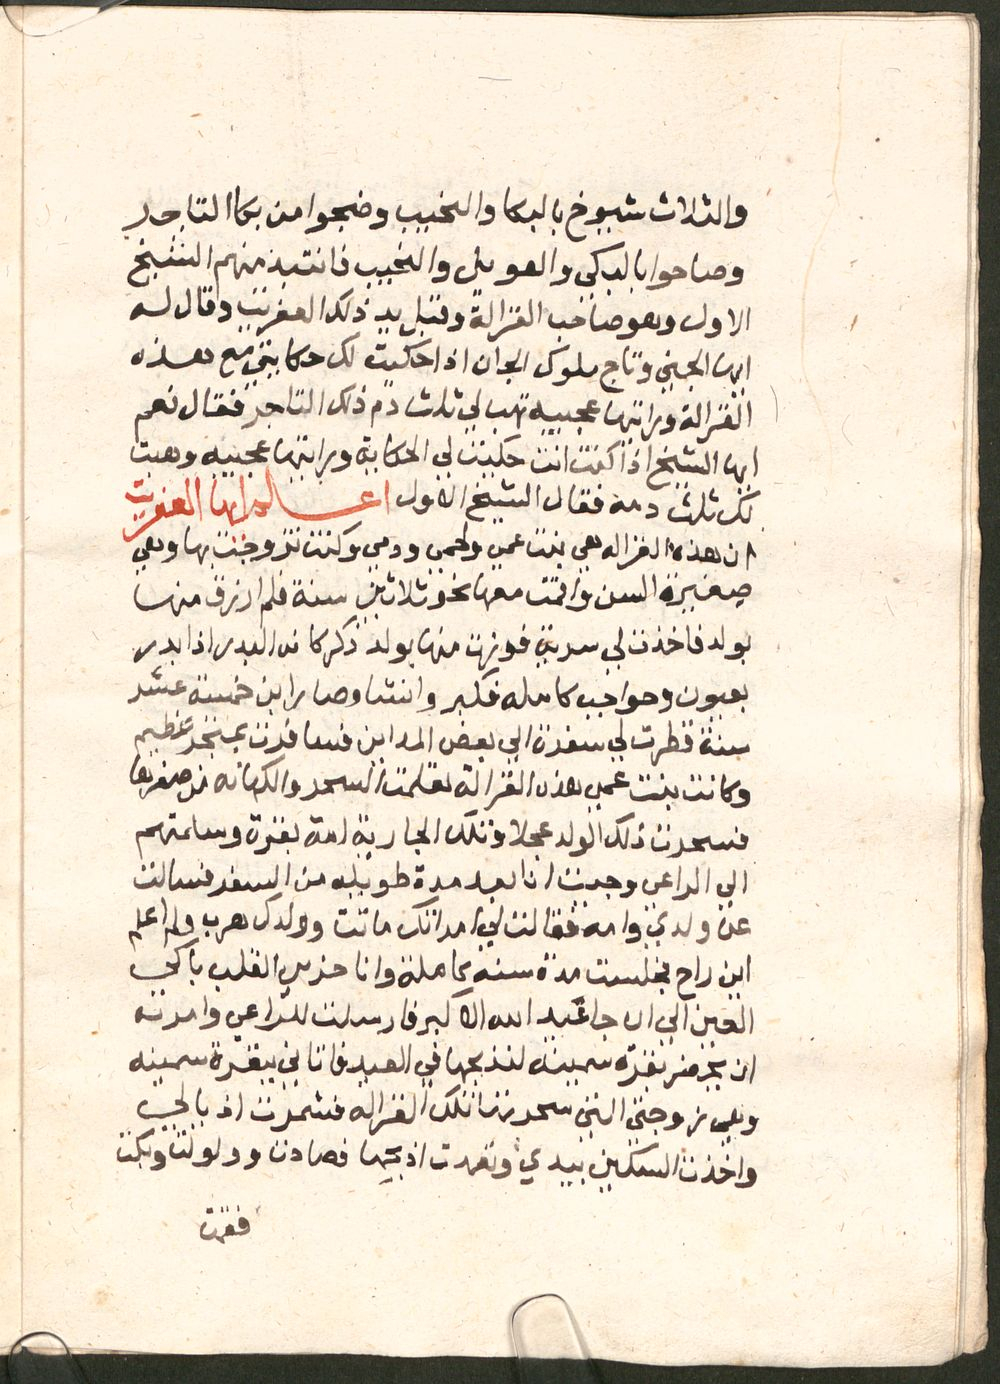 والثلاث شيوخ بالبكا والنحيب وضجوا من بكا التاجر
وصاحوا بالبكى والعويل والنحيب فانتبذ منهم الشيخ
الاول وهو صاحب الغزالة وقبل يد ذلك العفريت وقال له
ايها الجني وتاج ملوك الجان اذا حكيت لك حكايتي مع هذه
الغزالة ورايتها عجيبه تهب لي ثلث دم ذلك التاجر فقال نعم
ايها الشيخ اذا كنت انت حكيت لي الحكاية ورايتها عجيبه وهبت
لك ثلث دمه فقال الشيخ الاول اعلم ايها العفريت
ان هذه الغزاله هي بنت عمي ولحمي ودمي وكنت تزوجت بها وهي
صغيرة السن واقمت معها نحو ثلاثين سنة فلم ارزق منها
بولد فاخذت لي سرية فرزقت منها بولد ذكر كانه البدر اذا بدر
بعيون وحواجب كامله فكبر وانتشا وصار ابن خمسة عشر
سنة فطرت لي سفرة الي بعض المداين فسافرت بمتجر عظيم
وكانت بنت عمي هذه الغزالة تعلمت السحر والكهانه من صغرها
فسحرت ذلك الولد عجلا وتلك الجارية امه بقرة وسلمتهم
الي الراعي وجيت انا بعد مدة طويله من السفر فسالت
عن ولدي وامه فقالت لي امراتك ماتت وولدك هرب ولم اعلم
اين راح فجلست مدة سنه كاملة وانا حزين القلب باكي
العين الي ان جا عيد الله الاكبر فارسلت للراعي وامرته
ان يحضر بقرة سمينه لنذبحها في العيد فاتاني ببقرة سمينه
وهي زوجتي التي سحرتها تلك الغزاله فشمرت اذيالي
واخذت السكين بيدي وتهيت اذبحها فصاحت وولولت وبكت
فقمت